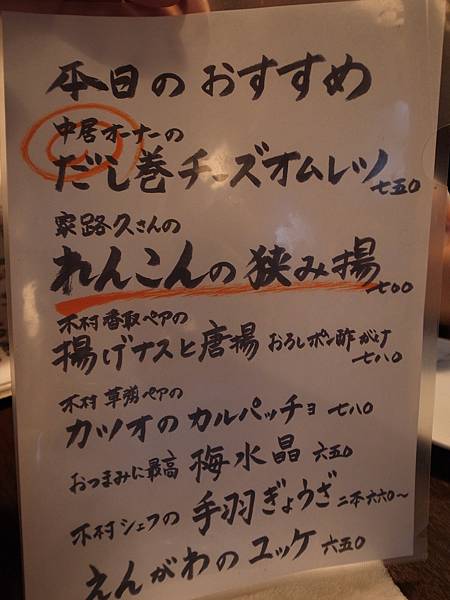 本日のおすすめ
中居オーナーの
だし巻チーズオムレツ 七五〇
家路久さんの
れんこんの狭み揚 七〇〇
木村香取ペアの
揚げナスと唐揚 おろしポン酢がけ 七八〇
木村 草彅ペアの
カツオのカルパッチョ 七八〇
おつまみに最高 梅水晶 六五〇
木村シェフの 手羽ぎょうざ 二本六六〇〜
えんがわのユッケ 六五〇